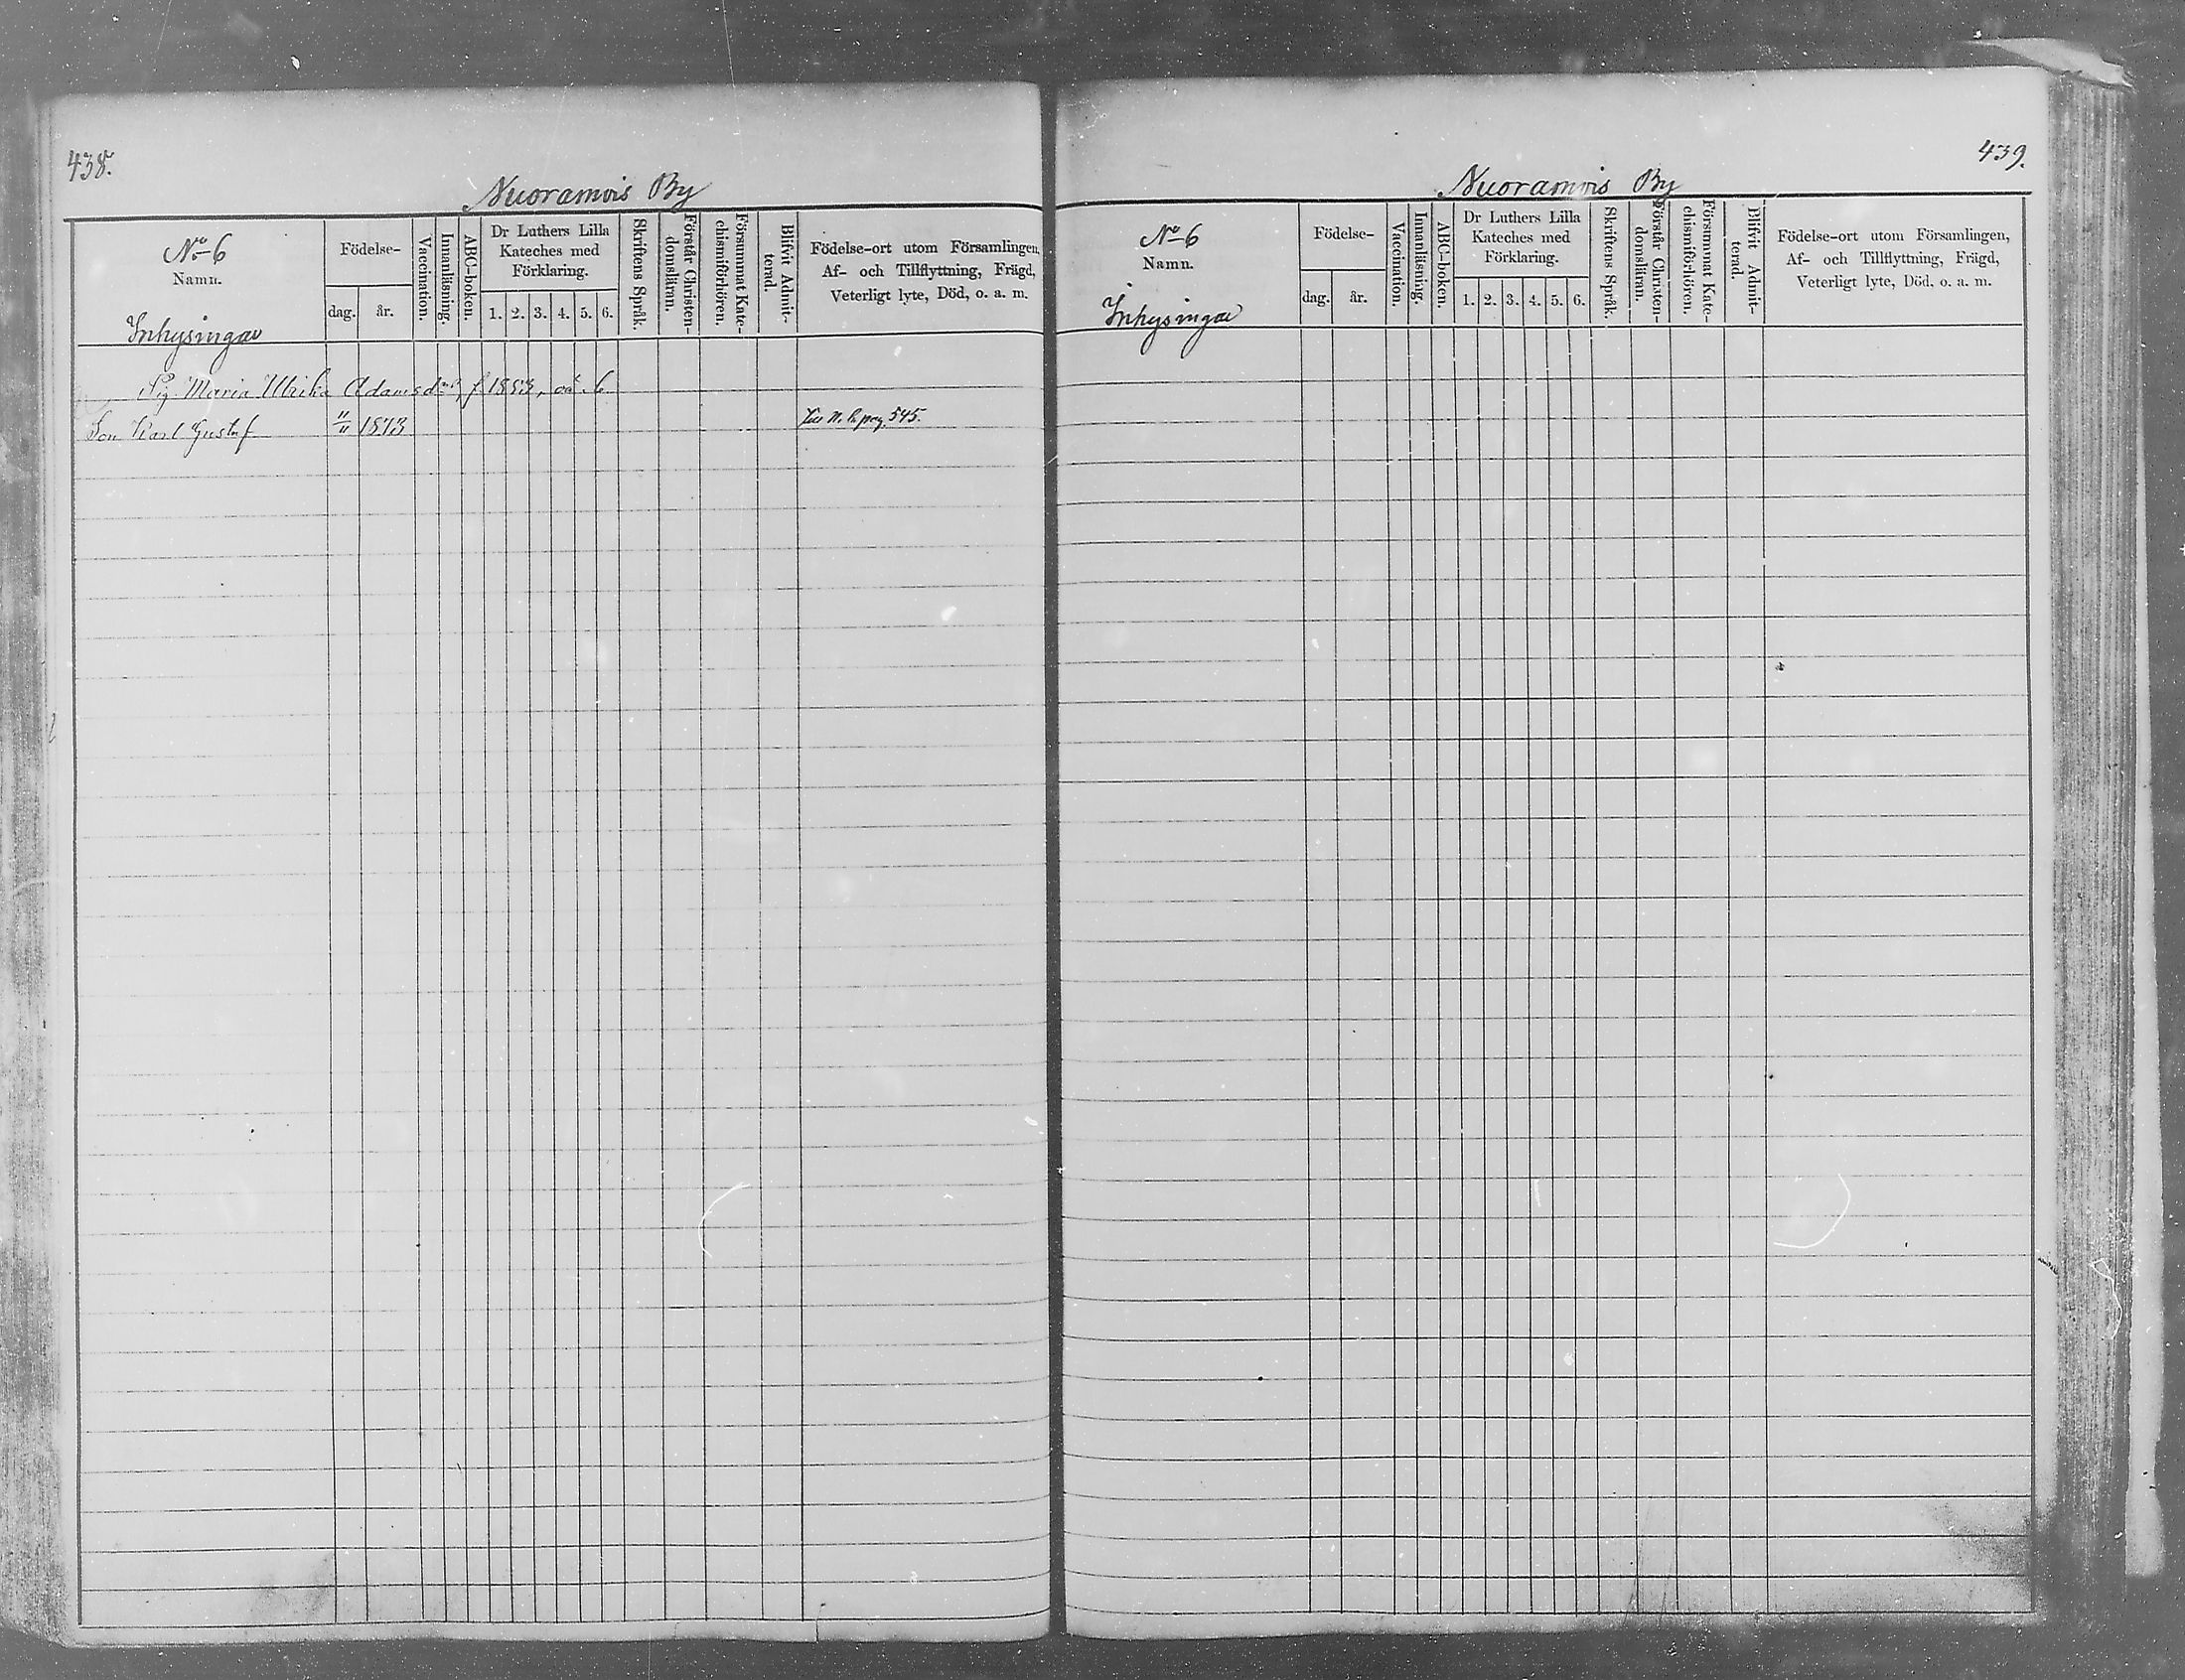 438.
Nuoramois By
No 6
Namn.
Inhysingar
Födelse-
dag. år.
Vaccination.
Innanläsning.
ABC-boken.
Dr Luthers Lilla
Kateches med
Förklaring.
1. 2. 3. 4. 5. 6.
Skriftens Språk.
Förstår Christen-
domsläran.
Försummat Kate-
chismiförhören.
Blifvit Admit-
terad.
Födelse-ort utom Församlingen,
Af- och Tillflyttning, Frägd,
Veterligt lyte, Död, o. a. m.
Pig. Maria Ulrika Adamsdr, f. 1853, 6
Son Karl Gustaf 1873 pag. 545.
439.
Nuoramois By
No 6
Namn.
Inhysingar
Födelse-
dag. år.
Vaccination.
Innanläsning.
ABC-boken.
Dr Luthers Lilla
Kateches med
Förklaring.
1. 2. 3. 4. 5. 6.
Skriftens Språk.
Förstår Christen-
domsläran.
Försummat Kate-
chismiförhören.
Blifvit Admit-
terad.
Födelse-ort utom Församlingen,
Af- och Tillflyttning, Frägd,
Veterligt lyte, Död, o. a. m.